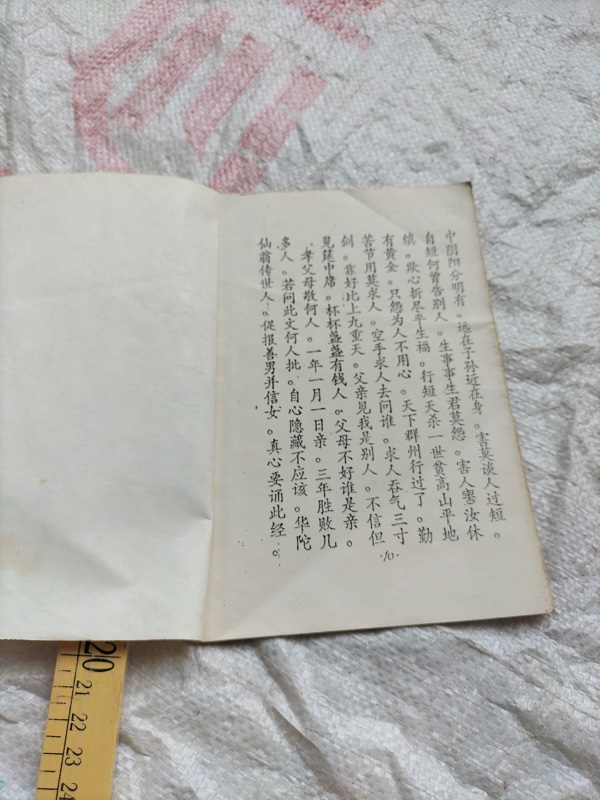 中阴阳分明有。远在子孙近在身。害莫谈人过短。
自短何曾告别人。生事事生君莫怨。害人害汝休
嗔。欺心折尽平生福。行短天杀一世贫高山平地
有黄金。只怨为人不用心。天下群州行过了。勤
苦节用莫求人。空手求人去问谁。求人吞气三寸
剑。靠好比上九重天。父亲见我是别人。不信但
见筵中席。杯杯盏盏有钱人。父母不好谁是亲。
孝父母敬何人。一年一月一日亲。三年胜败儿
多人。若问此文何人批。自心隐藏不应该。华陀
仙翁传世人。促报善男并信女。真心要诵此经。
·10·
20
21
22
23
24